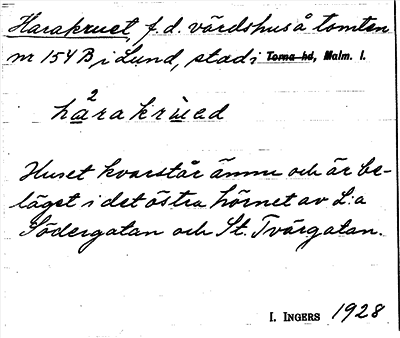 Harakruet, f.d. värdshus å tomten
nr 154 B, i Lund, stad i Torna hd, Malm. l.
ha²rakrùəd
Huset kvarstår ännu och är be-
läget i det östra hörnet av L:a
Södergatan och St. Tvärgatan.
I. INGERS 1928